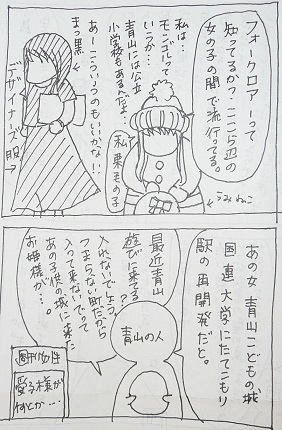 フォークロアーって
知ってるかっ.ここら辺の
女の子の間で流行ってる。
私は…
モンゴルって
いうか…
青山には公立
小学校もあるんだよ…
私
栗毛の子
←うみねこ
あーこういうのもいいかな!!
まっ黒
デザイナーズ服→
あの女 青山こどもの城
国連大学にたてこもり
駅の再開発だと。
青山の人
最近青山
遊びに来てる?
入れないでしょっ
つまらない町だから
入って来ないでって
あの子供の城に来た
お姫様が…。
週刊
愛子様が
なんとか…